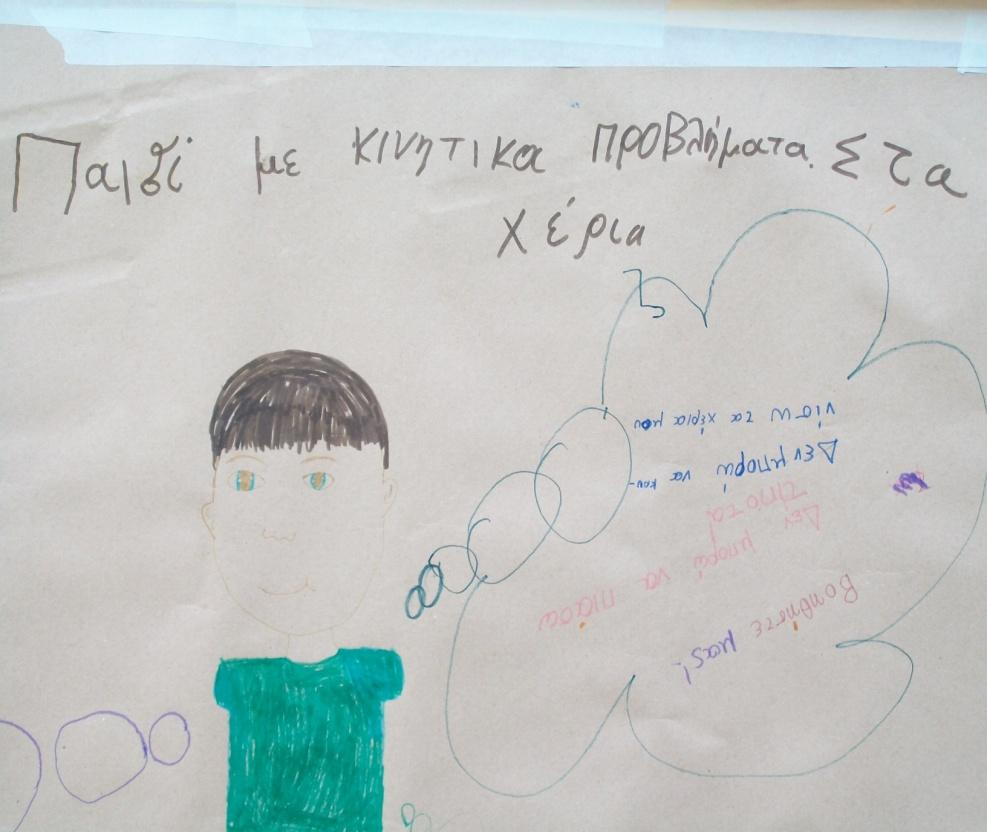 Παιδί με κινητικα προβλήματα Στα
χέρια
Βοηθήστε μας!
Δεν μπορώ να πιάσω
τιποτα
Δεν μπορώ να κου-
νίσω τα χέρια μου